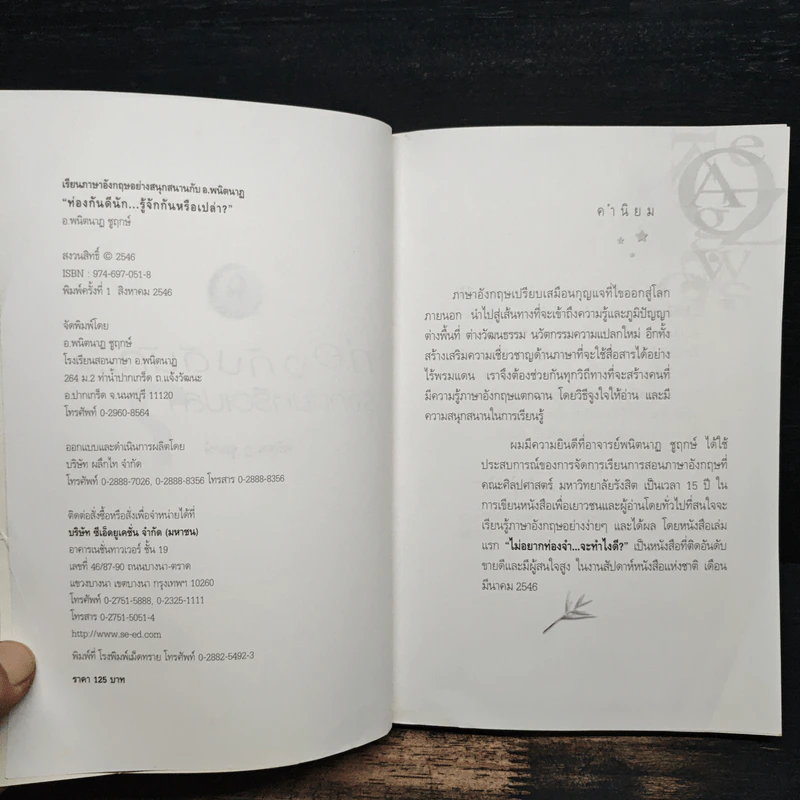 เรียนภาษาอังกฤษอย่างสนุกสนานกับ อ.พนิตนาฏ
"ท่องกันดีนัก...รู้จักกันหรือเปล่า?"
อ.พนิตนาฏ ชูฤกษ์
สงวนสิทธิ์ © 2546
ISBN : 974-697-051-8
พิมพ์ครั้งที่ 1 สิงหาคม 2546
จัดพิมพ์โดย
อ.พนิตนาฏ ชูฤกษ์
โรงเรียนสอนภาษา อ.พนิตนาฏ
264 ม.2 ท่าน้ำปากเกร็ด ถ.แจ้งวัฒนะ
อ.ปากเกร็ด จ.นนทบุรี 11120
โทรศัพท์ 0-2960-8564
ออกแบบและดำเนินการผลิตโดย
บริษัท ผลึกไท จำกัด
โทรศัพท์ 0-2888-7026, 0-2888-8356 โทรสาร 0-2888-8356
ติดต่อสั่งซื้อหรือสั่งเพื่อจำหน่ายได้ที่
บริษัท ซีเอ็ดยูเคชั่น จำกัด (มหาชน)
อาคารเนชั่นทาวเวอร์ ชั้น 19
เลขที่ 46/87-90 ถนนบางนา-ตราด
แขวงบางนา เขตบางนา กรุงเทพฯ 10260
โทรศัพท์ 0-2751-5888, 0-2325-1111
โทรสาร 0-2751-5051-4
http://www.se-ed.com
พิมพ์ที่ โรงพิมพ์เม็ดทราย โทรศัพท์ 0-2882-5492-3
ราคา 125 บาท
คำนิยม
ภาษาอังกฤษเปรียบเสมือนกุญแจที่ไขออกสู่โลก
ภายนอก นำไปสู่เส้นทางที่จะเข้าถึงความรู้และภูมิปัญญา
ต่างพื้นที่ ต่างวัฒนธรรม นวัตกรรมความแปลกใหม่ อีกทั้ง
สร้างเสริมความเชี่ยวชาญด้านภาษาที่จะใช้สื่อสารได้อย่าง
ไร้พรมแดน เราจึงต้องช่วยกันทุกวิถีทางที่จะสร้างคนที่
มีความรู้ภาษาอังกฤษแตกฉาน โดยวิธีจูงใจให้อ่าน และมี
ความสนุกสนานในการเรียนรู้
ผมมีความยินดีที่อาจารย์พนิตนาฏ ชูฤกษ์ ได้ใช้
ประสบการณ์ของการจัดการเรียนการสอนภาษาอังกฤษที่
คณะศิลปศาสตร์ มหาวิทยาลัยรังสิต เป็นเวลา 15 ปี ใน
การเขียนหนังสือเพื่อเยาวชนและผู้อ่านโดยทั่วไปที่สนใจจะ
เรียนรู้ภาษาอังกฤษอย่างง่ายๆ และได้ผล โดยหนังสือเล่ม
แรก "ไม่อยากท่องจำ...จะทำไงดี?" เป็นหนังสือที่ติดอันดับ
ขายดีและมีผู้สนใจสูง ในงานสัปดาห์หนังสือแห่งชาติ เดือน
มีนาคม 2546